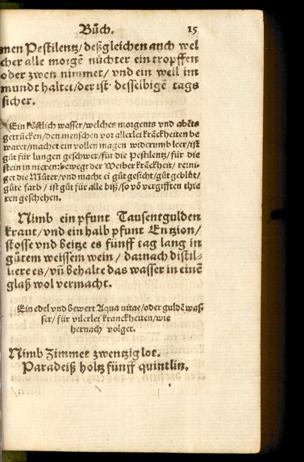 Bůch. 15
men Pestilentz / deßgleichen auch wel
cher alle morgē nüchter ein tropffen
oder zwen nimmet / vnd ein weil im
mundt haltet / der ist desselbigē tags
sicher.
Ein köstlich wasser / welches morgents vnd abēts
getruncken / den menschen vor allerlei kranckheiten be
waret / machet ein vollen magen widerumb leer / ist
gůt für lungen geschwer / für die Pestilentz / für die
stein in nieren: bewegt der Weiber kranckheit / reini-
get die Můter / vnd macht ei gůt gesicht / gůt geblůt /
gůte farb / ist gůt für alle biß / so vō vergifften thie
ren geschehen.
Nimb ein pfunt Tausentgulden
kraut / vnd ein halb pfunt Entzion /
stosse vnd beitze es fünff tag lang in
gůtem weissem wein / darnach distil-
liere es / vñ behalte das wasser in einē
glaß wol vermacht.
Ein edel vnd bewert Aqua uitae / oder guldē was-
ser / für vilerlei kranckheiten / wie
hernach volget.
Nimb Zimmet zwentzig lot.
Paradeiß holtz fünff quintlin.